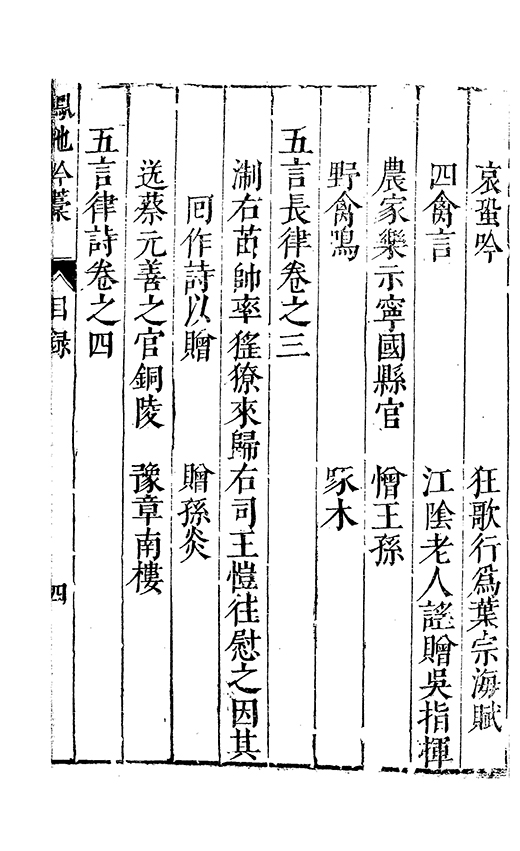 哀蛩吟　狂歌行爲葉宗海賦
四禽言　江陰老人謠贈吳指揮
農家樂示寧國縣官　憎王孫
野禽鳴　啄木
五言長律卷之三
湖右苗帥率猺獠來歸右司王愷往慰之因其
囘作詩以贈　贈孫炎
送蔡元善之官銅陵　豫章南樓
五言律詩卷之四
鳳池吟藁　目録　四